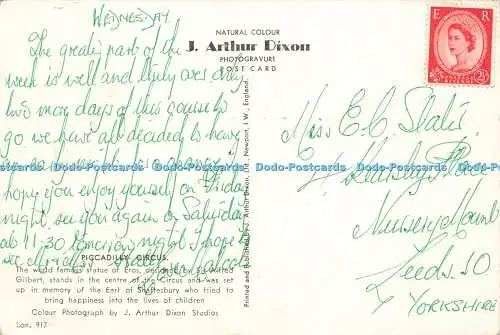 WEDNESDAY.
The greater part of the
week is well and truly over only
two more days of this course to
go, we have all decided to have
hope you enjoy yourself on Friday
night, see you again on Saturday
at 11-30 tomorrow night I hope
PICCADILLY CIRCUS.
The world famous statue of Eros, designed by Sir Alfred
Gilbert, stands in the centre of the Circus and was set
up in memory of the Earl of Shaftesbury who tried to
bring happiness into the lives of children
Colour Photograph by J. Arthur Dixon Studios
Lon. 917
NATURAL COLOUR
J. Arthur Dixon
PHOTOGRAVURE
POST CARD
Printed and published by J. Arthur Dixon Ltd., Newport, I.W., England.
E R
2½
Miss E. C. Slater
Nursery Mount
Leeds. 10
YORKSHIRE
Dodo-Postcards.com Dodo-Postcards.com Dodo-Postcards.com Dodo-Postcards.com